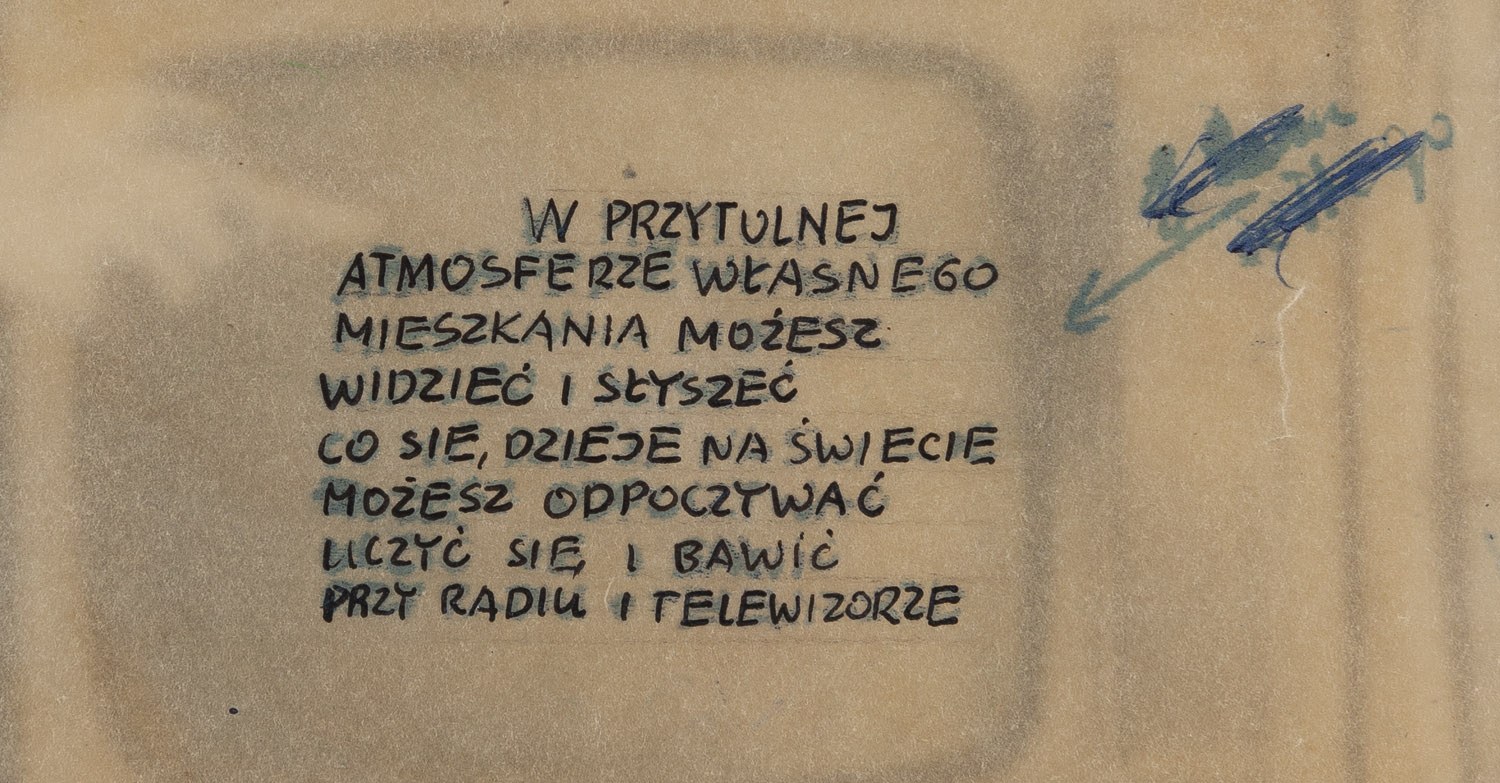 W PRZYTULNEJ
ATMOSFERZE WŁASNEGO
MIESZKANIA MOŻESZ
WIDZIEĆ I SŁYSZEĆ
CO SIĘ DZIEJE NA ŚWIECIE
MOŻESZ ODPOCZYWAĆ
UCZYĆ SIĘ I BAWIĆ
PRZY RADIU I TELEWIZORZE